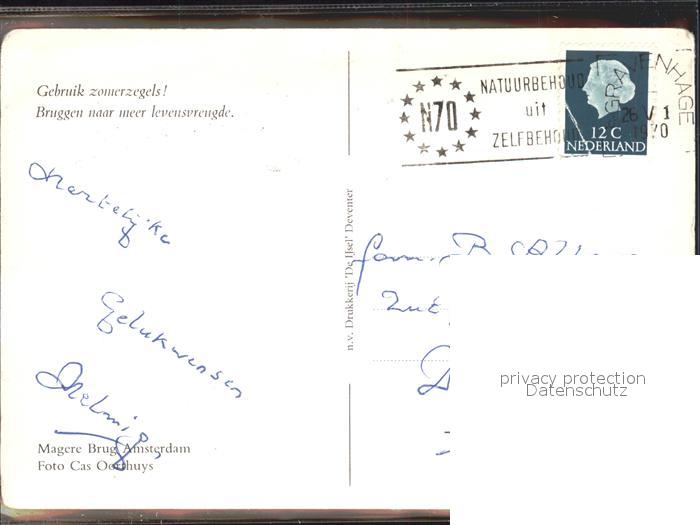 Gebruik zomerzegels!
Bruggen naar meer levensvreugde.
Hartelijke
Gelukwensen
Magere Brug Amsterdam
Foto Cas Oorthuys
n.v. Drukkerij 'De IJsel' Deventer
N70
NATUURBEHOUD
uit
ZELFBEHOUD
'S GRAVENHAGE
26 V 1
1970
12 C
NEDERLAND
Fam.
privacy protection
Datenschutz